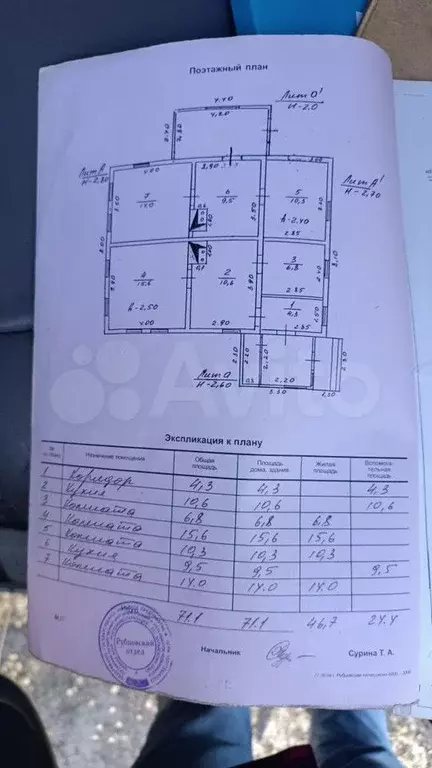 Поэтажный план
4.40
4.20
Лит О'
Н-2.0
Лит А
Н-2.80
4.00
2.90
Лит А'
Н-2.70
7
14.0
3.50
6
9.5
5
10.3
h-2.40
2.85
3
6.8
2.85
4
15.6
h-2.50
2
10.6
1
4.3
2.85
4.00
2.90
Лит а
Н-2.60
2.20
2.20
Экспликация к плану
Назначение помещения
Общая площадь
Площадь дома, здания
Жилая площадь
Вспомога-тельная площадь
1 Коридор 4,3 4,3 4,3
2 Кухня 10,6 10,6 10,6
3 Комната 6,8 6,8 6,8
4 Комната 15,6 15,6 15,6
5 Комната 10,3 10,3 10,3
6 Кухня 9,5 9,5 9,5
7 Комната 14.0 14.0 14.0
71.1 71.1 46,7 24.4
Рубцовский отдел
Начальник
Сурина Т. А.
Avito